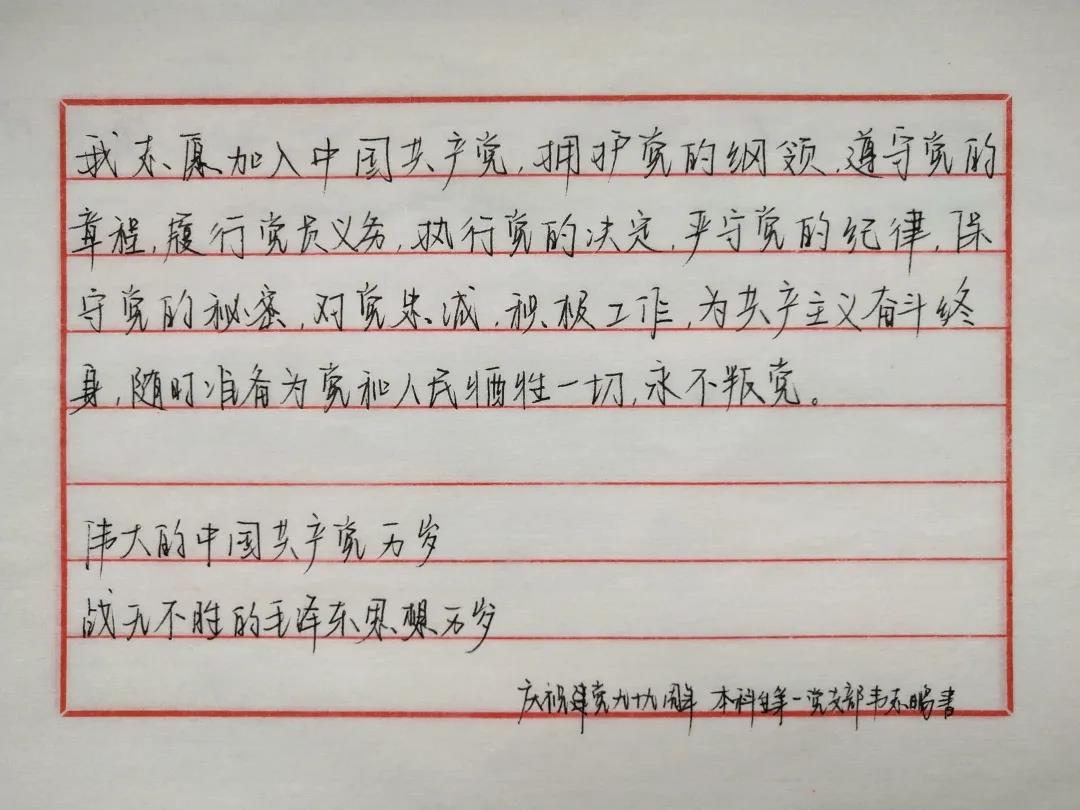 我志愿加入中国共产党，拥护党的纲领，遵守党的
章程，履行党员义务，执行党的决定，严守党的纪律，保
守党的秘密，对党忠诚，积极工作，为共产主义奋斗终
身，随时准备为党和人民牺牲一切，永不叛党。
伟大的中国共产党万岁
战无不胜的毛泽东思想万岁
庆祝建党九十九周年 本科生第一党支部韦志鹏书